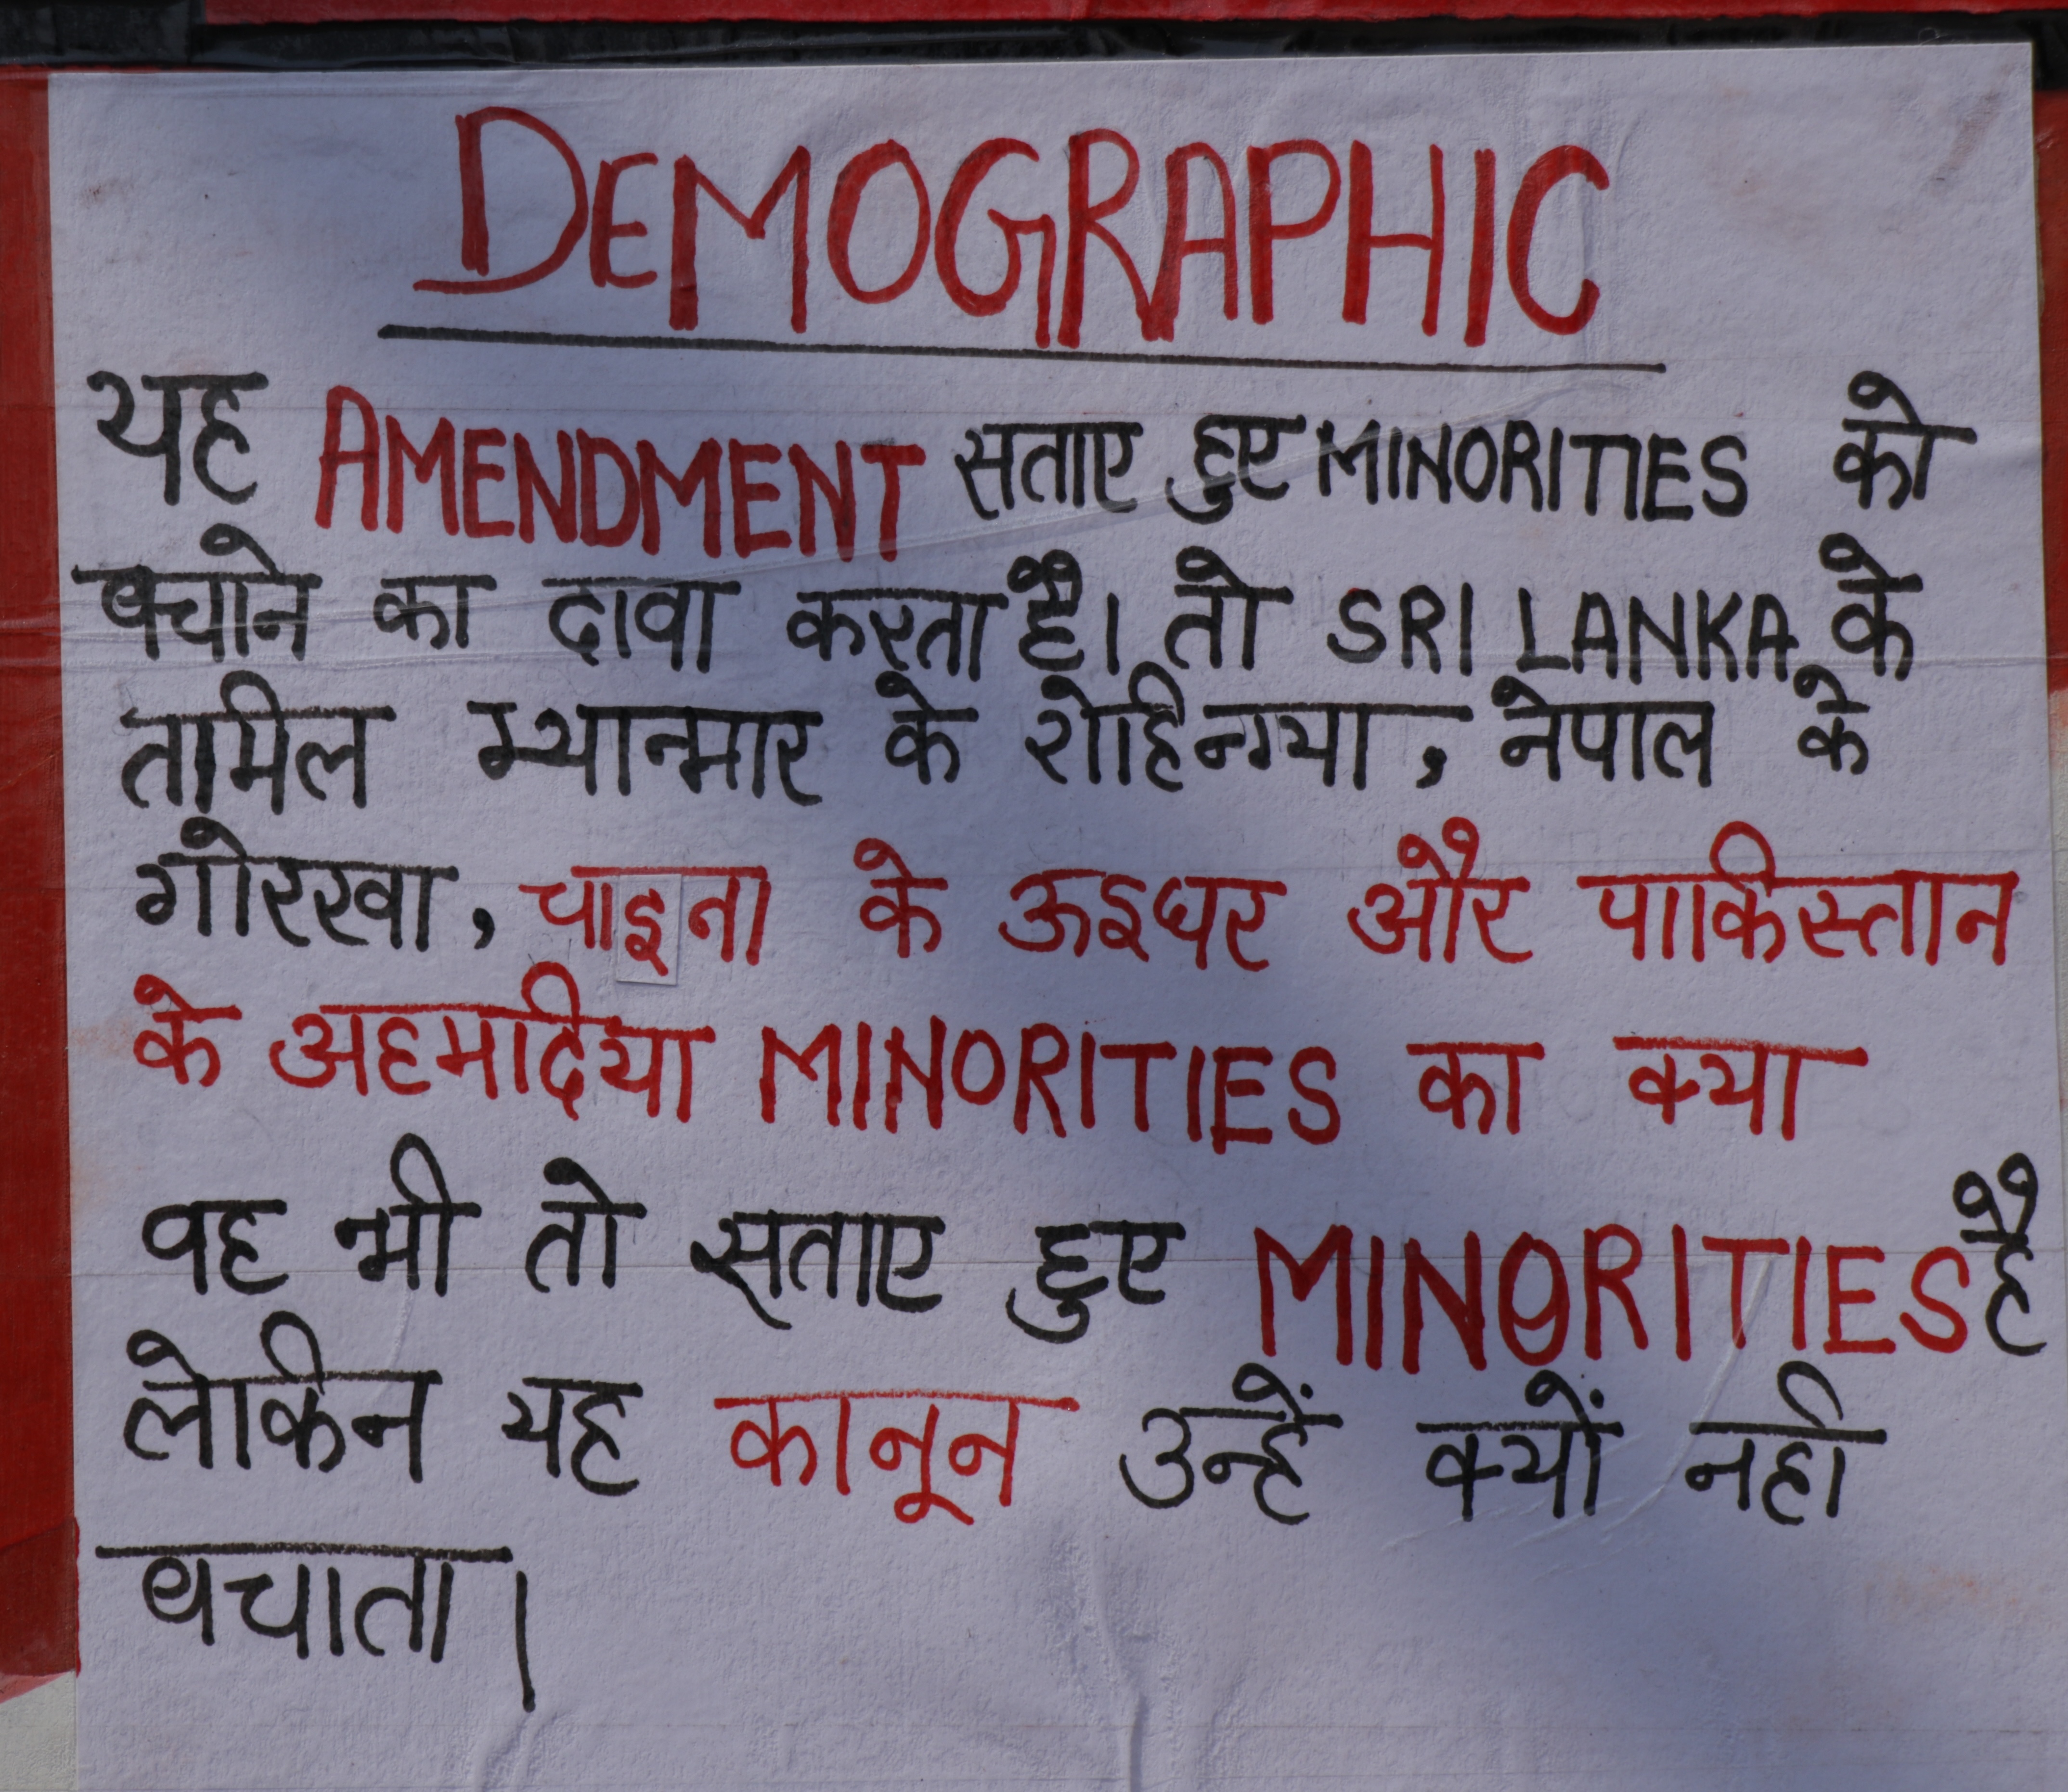 DEMOGRAPHIC
यह AMENDMENT सताए हुए MINORITIES को
बचाने का दावा करता है। तो SRI LANKA के
तामिल म्यान्मार के रोहिन्ग्या, नेपाल के
गोरखा, चाइना के ऊइघर और पाकिस्तान
के अहमदिया MINORITIES का क्या
वह भी तो सताए हुए MINORITIES है
लेकिन यह कानून उन्हें क्यों नही
बचाता।